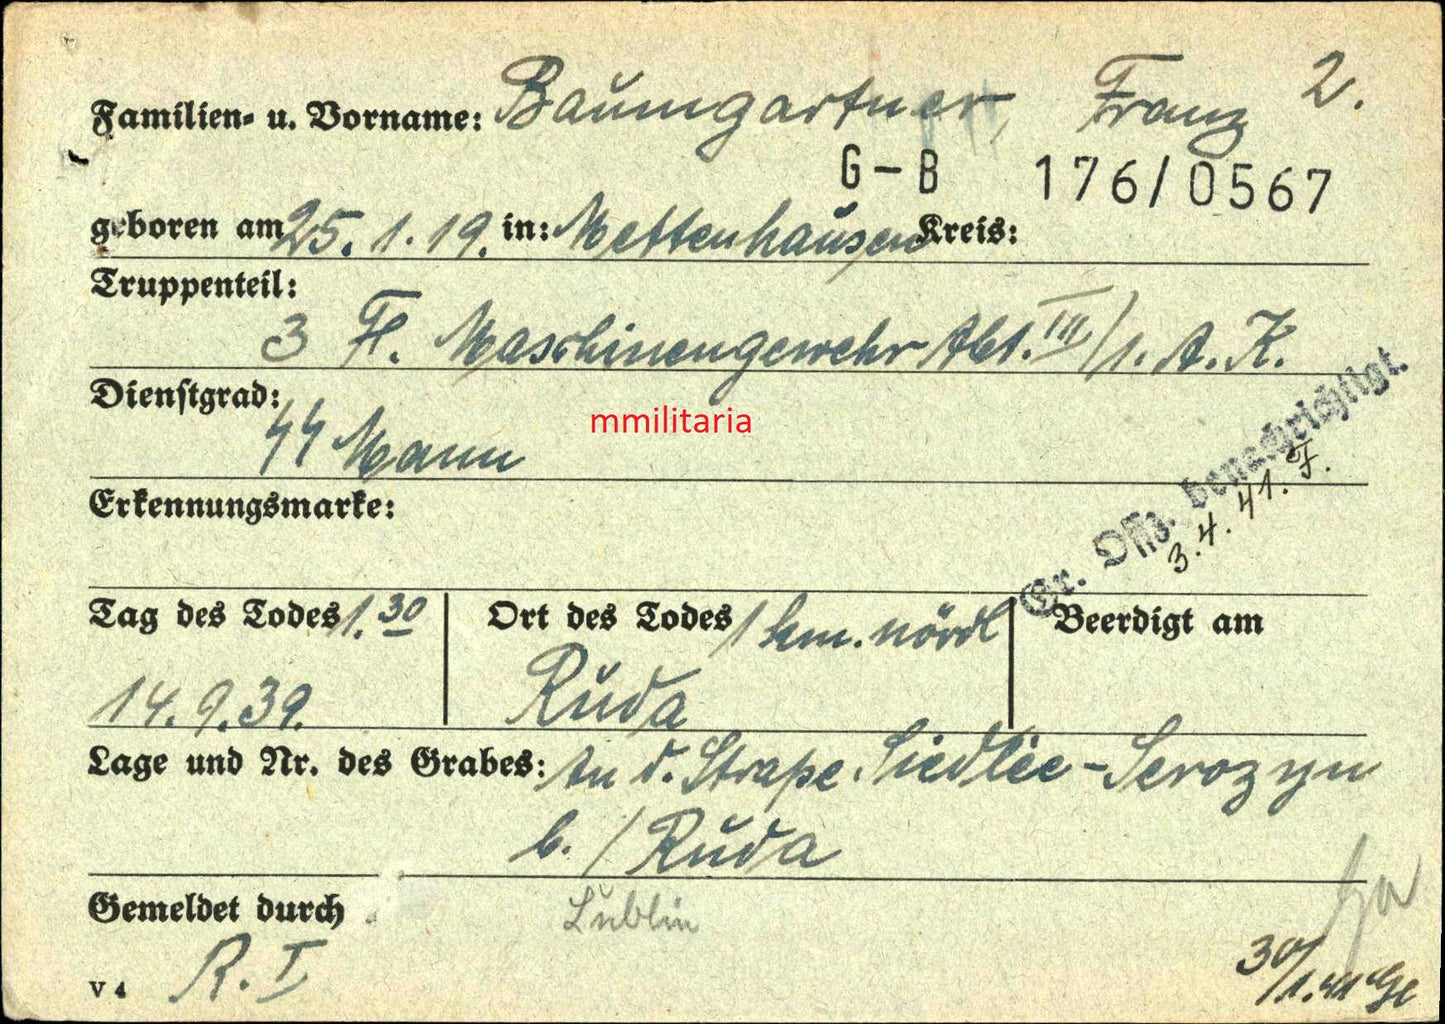 Familien- u. Vorname: Baumgartner, Franz 2.
G-B 176/0567
geboren am 25.1.19. in: Mettenhausen Kreis:
Truppenteil:
3 Fl. Maschinengewehr Abt. III/1. A. K.
Dienstgrad:
SS Mann
mmilitaria
Erkennungsmarke:
Gr. Offz. benachrichtigt.
3.4.41. F.
Tag des Todes 1.30
14.9.39.
Ort des Todes 1 km. nördl
Ruda
Beerdigt am
Lage und Nr. des Grabes: An d. Straße Siedlce-Seroczyn
b. / Ruda
Gemeldet durch
Lublin
R. I
V 4
30/1.41